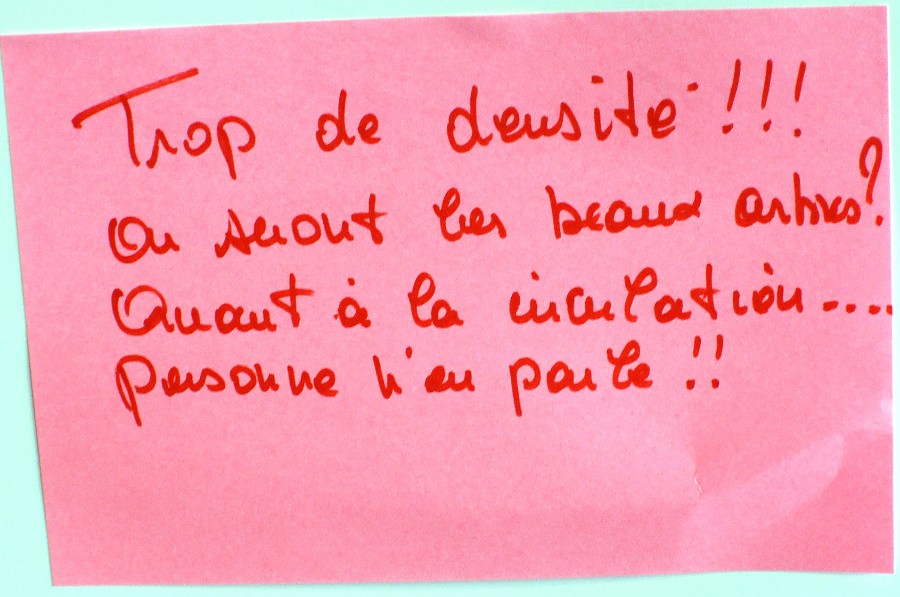 Trop de densité !!!
Ou seront les beaux arbres ?
Quant à la circulation....
personne n'en parle !!